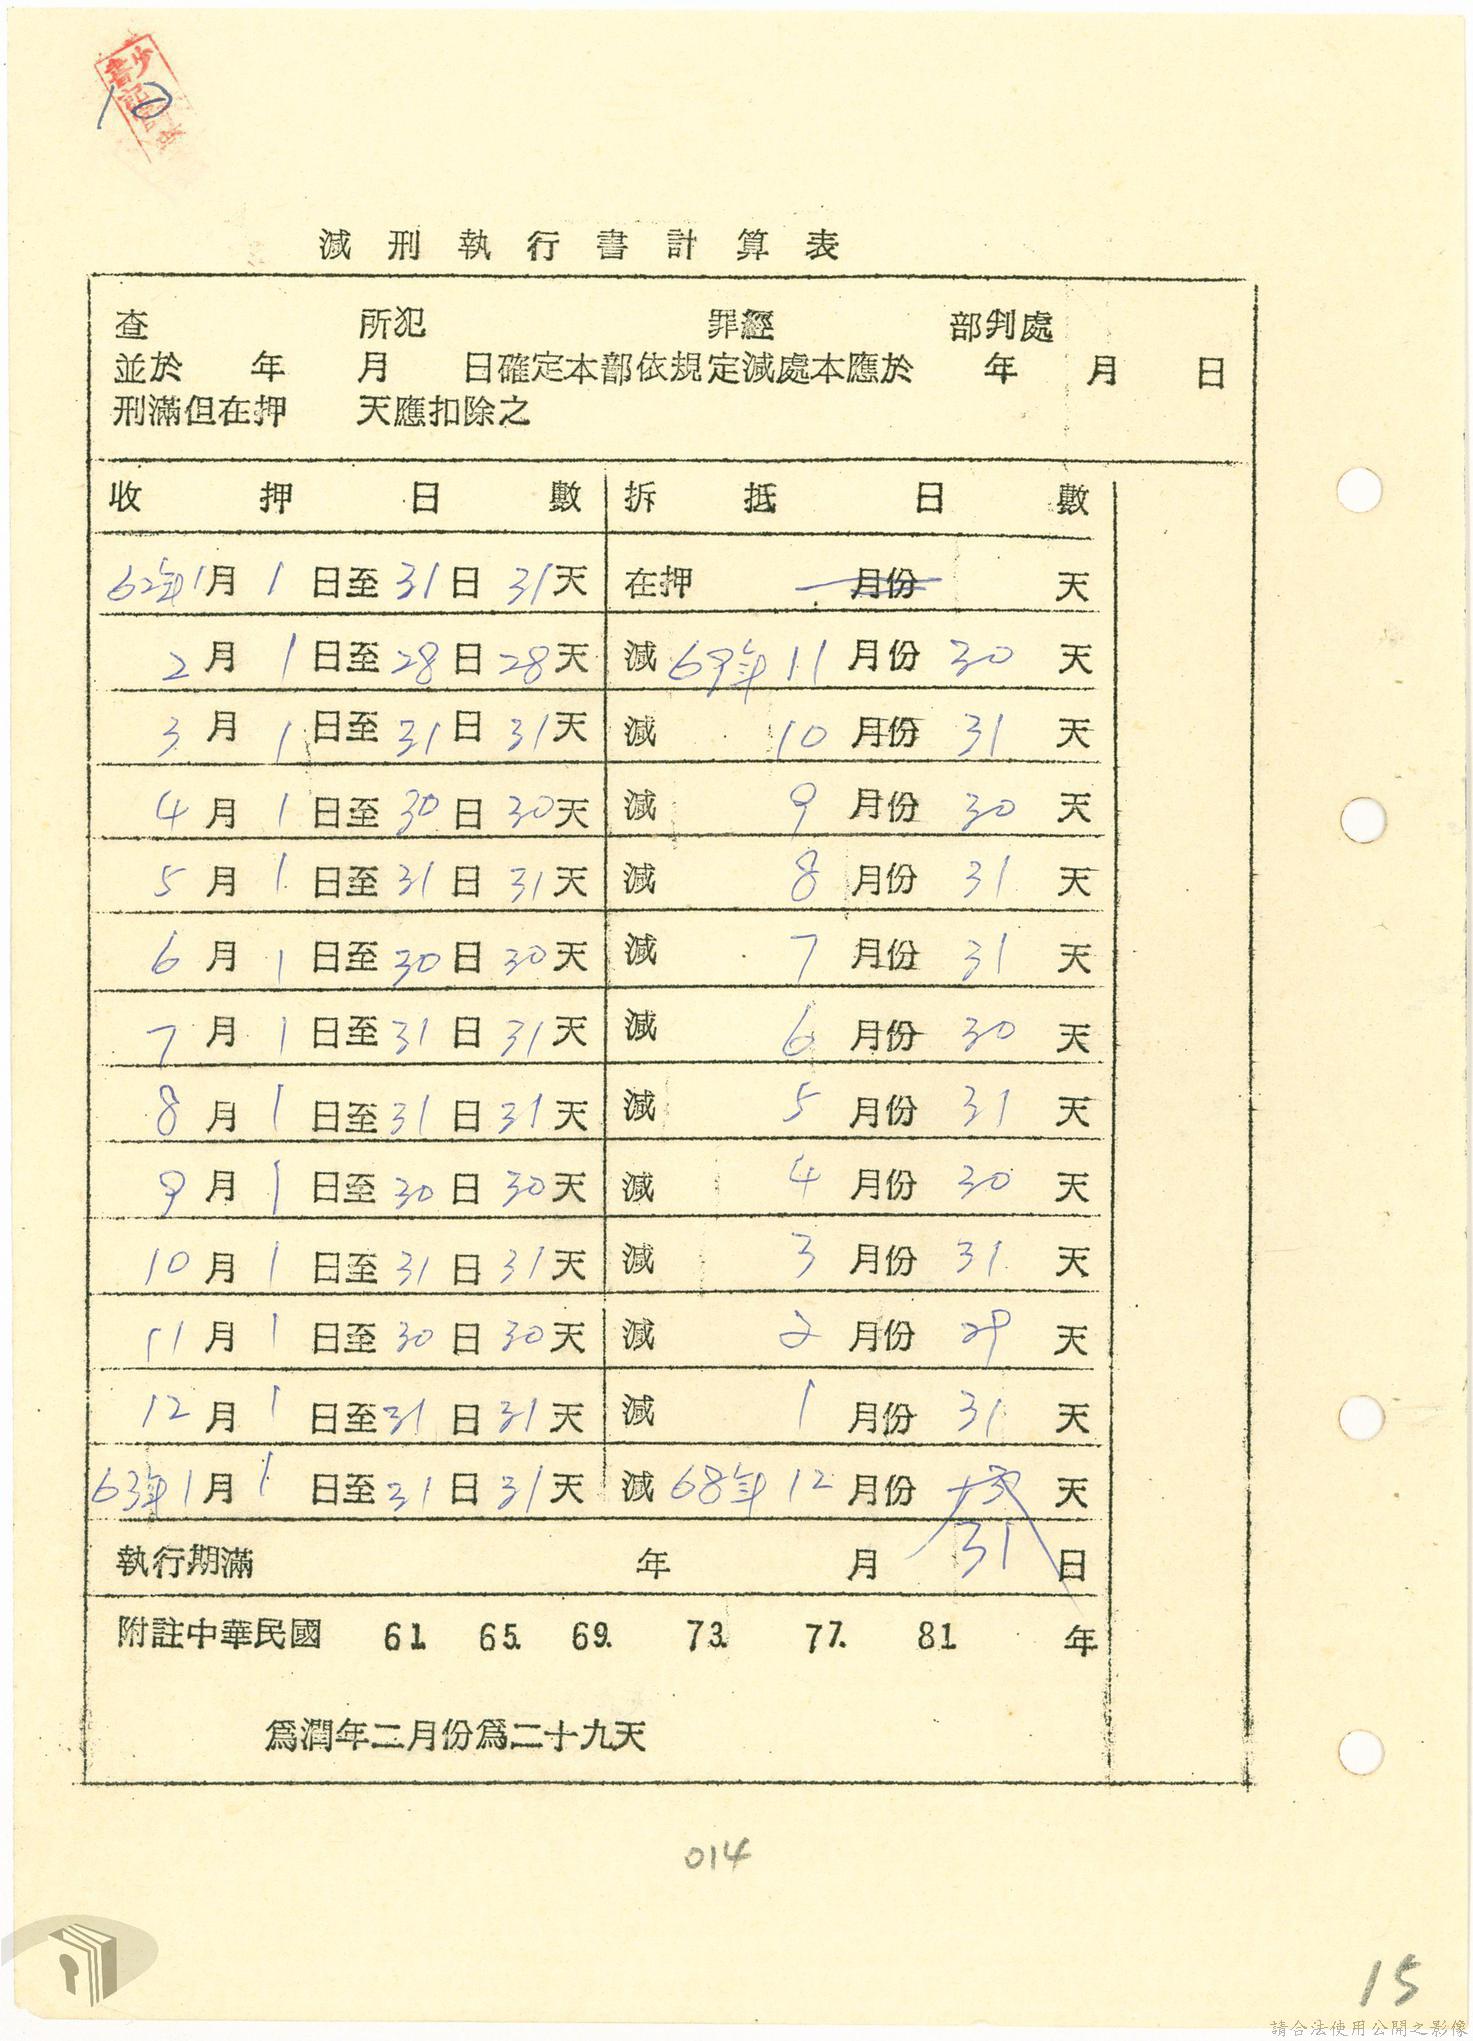 10
減刑執行書計算表
查 所犯 罪經 部判處
並於 年 月 日確定本部依規定減處本應於 年 月 日
刑滿但在押 天應扣除之
收押日數 拆抵日數
62年1月1日至31日31天 在押 月份 天
2月1日至28日28天 減69年11月份30天
3月1日至31日31天 減10月份31天
4月1日至30日30天 減9月份30天
5月1日至31日31天 減8月份31天
6月1日至30日30天 減7月份31天
7月1日至31日31天 減6月份30天
8月1日至31日31天 減5月份31天
9月1日至30日30天 減4月份30天
10月1日至31日31天 減3月份31天
11月1日至30日30天 減2月份29天
12月1日至31日31天 減1月份31天
63年1月1日至31日31天 減68年12月份 天
31
執行期滿 年 月 日
附註中華民國 61. 65. 69. 73. 77. 81 年
為潤年二月份為二十九天
014
15
請合法使用公開之影像